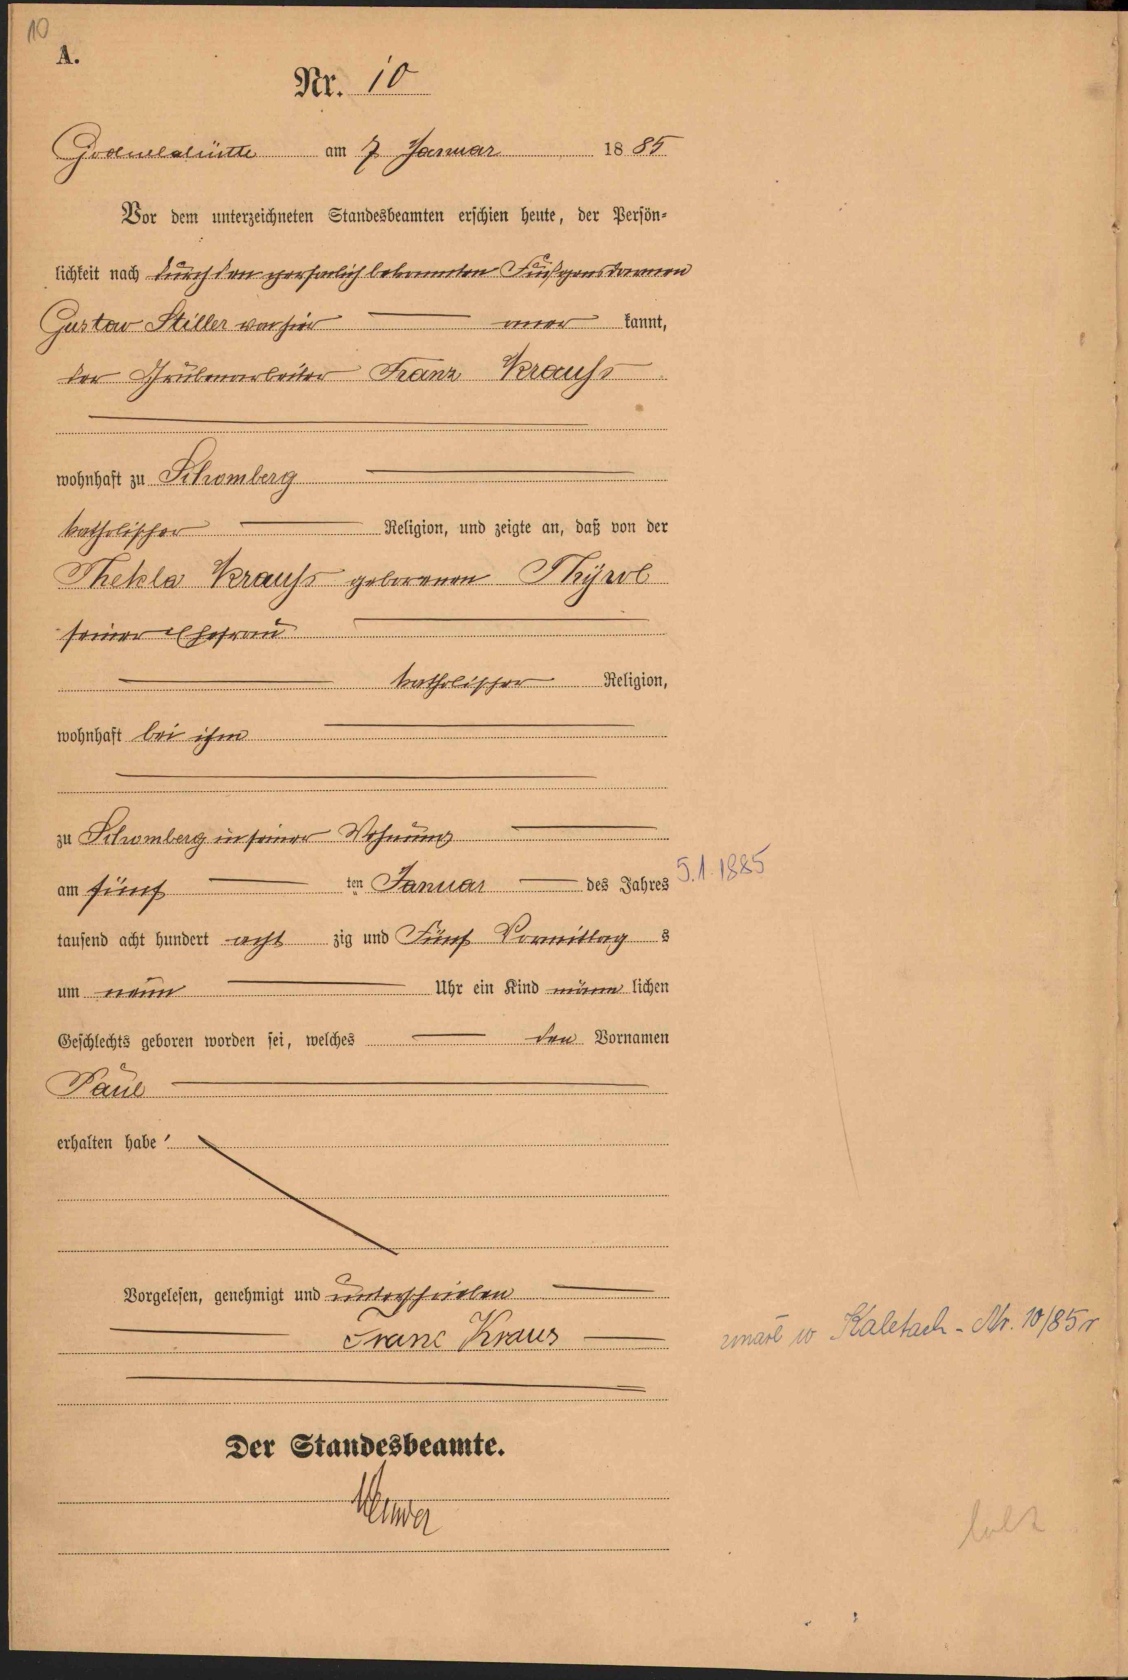 10
A.
Nr. 10
Godullahütte am 7 Januar 1885
Vor dem unterzeichneten Standesbeamten erschien heute, der Persön-
lichkeit nach durch den persönlich bekannten Fußgensdarmen
Gustav Stiller vor hier — aner kannt,
der Grubenarbeiter Franz Krauss
wohnhaft zu Schomberg
katholischer Religion, und zeigte an, daß von der
Thekla Krauss geborenen Thÿrol
seiner Ehefrau
katholischer Religion,
wohnhaft bei ihm
zu Schomberg in seiner Wohnung
am fünf ten Januar des Jahres 5.1.1885
tausend acht hundert acht zig und Fünf Vormittag s
um neun Uhr ein Kind männ lichen
Geschlechts geboren worden sei, welches den Vornamen
Paul
erhalten habe
Vorgelesen, genehmigt und unterschrieben
Franc Kraus
zmarł w Kaletach - Nr. 10/85 r
Der Standesbeamte.